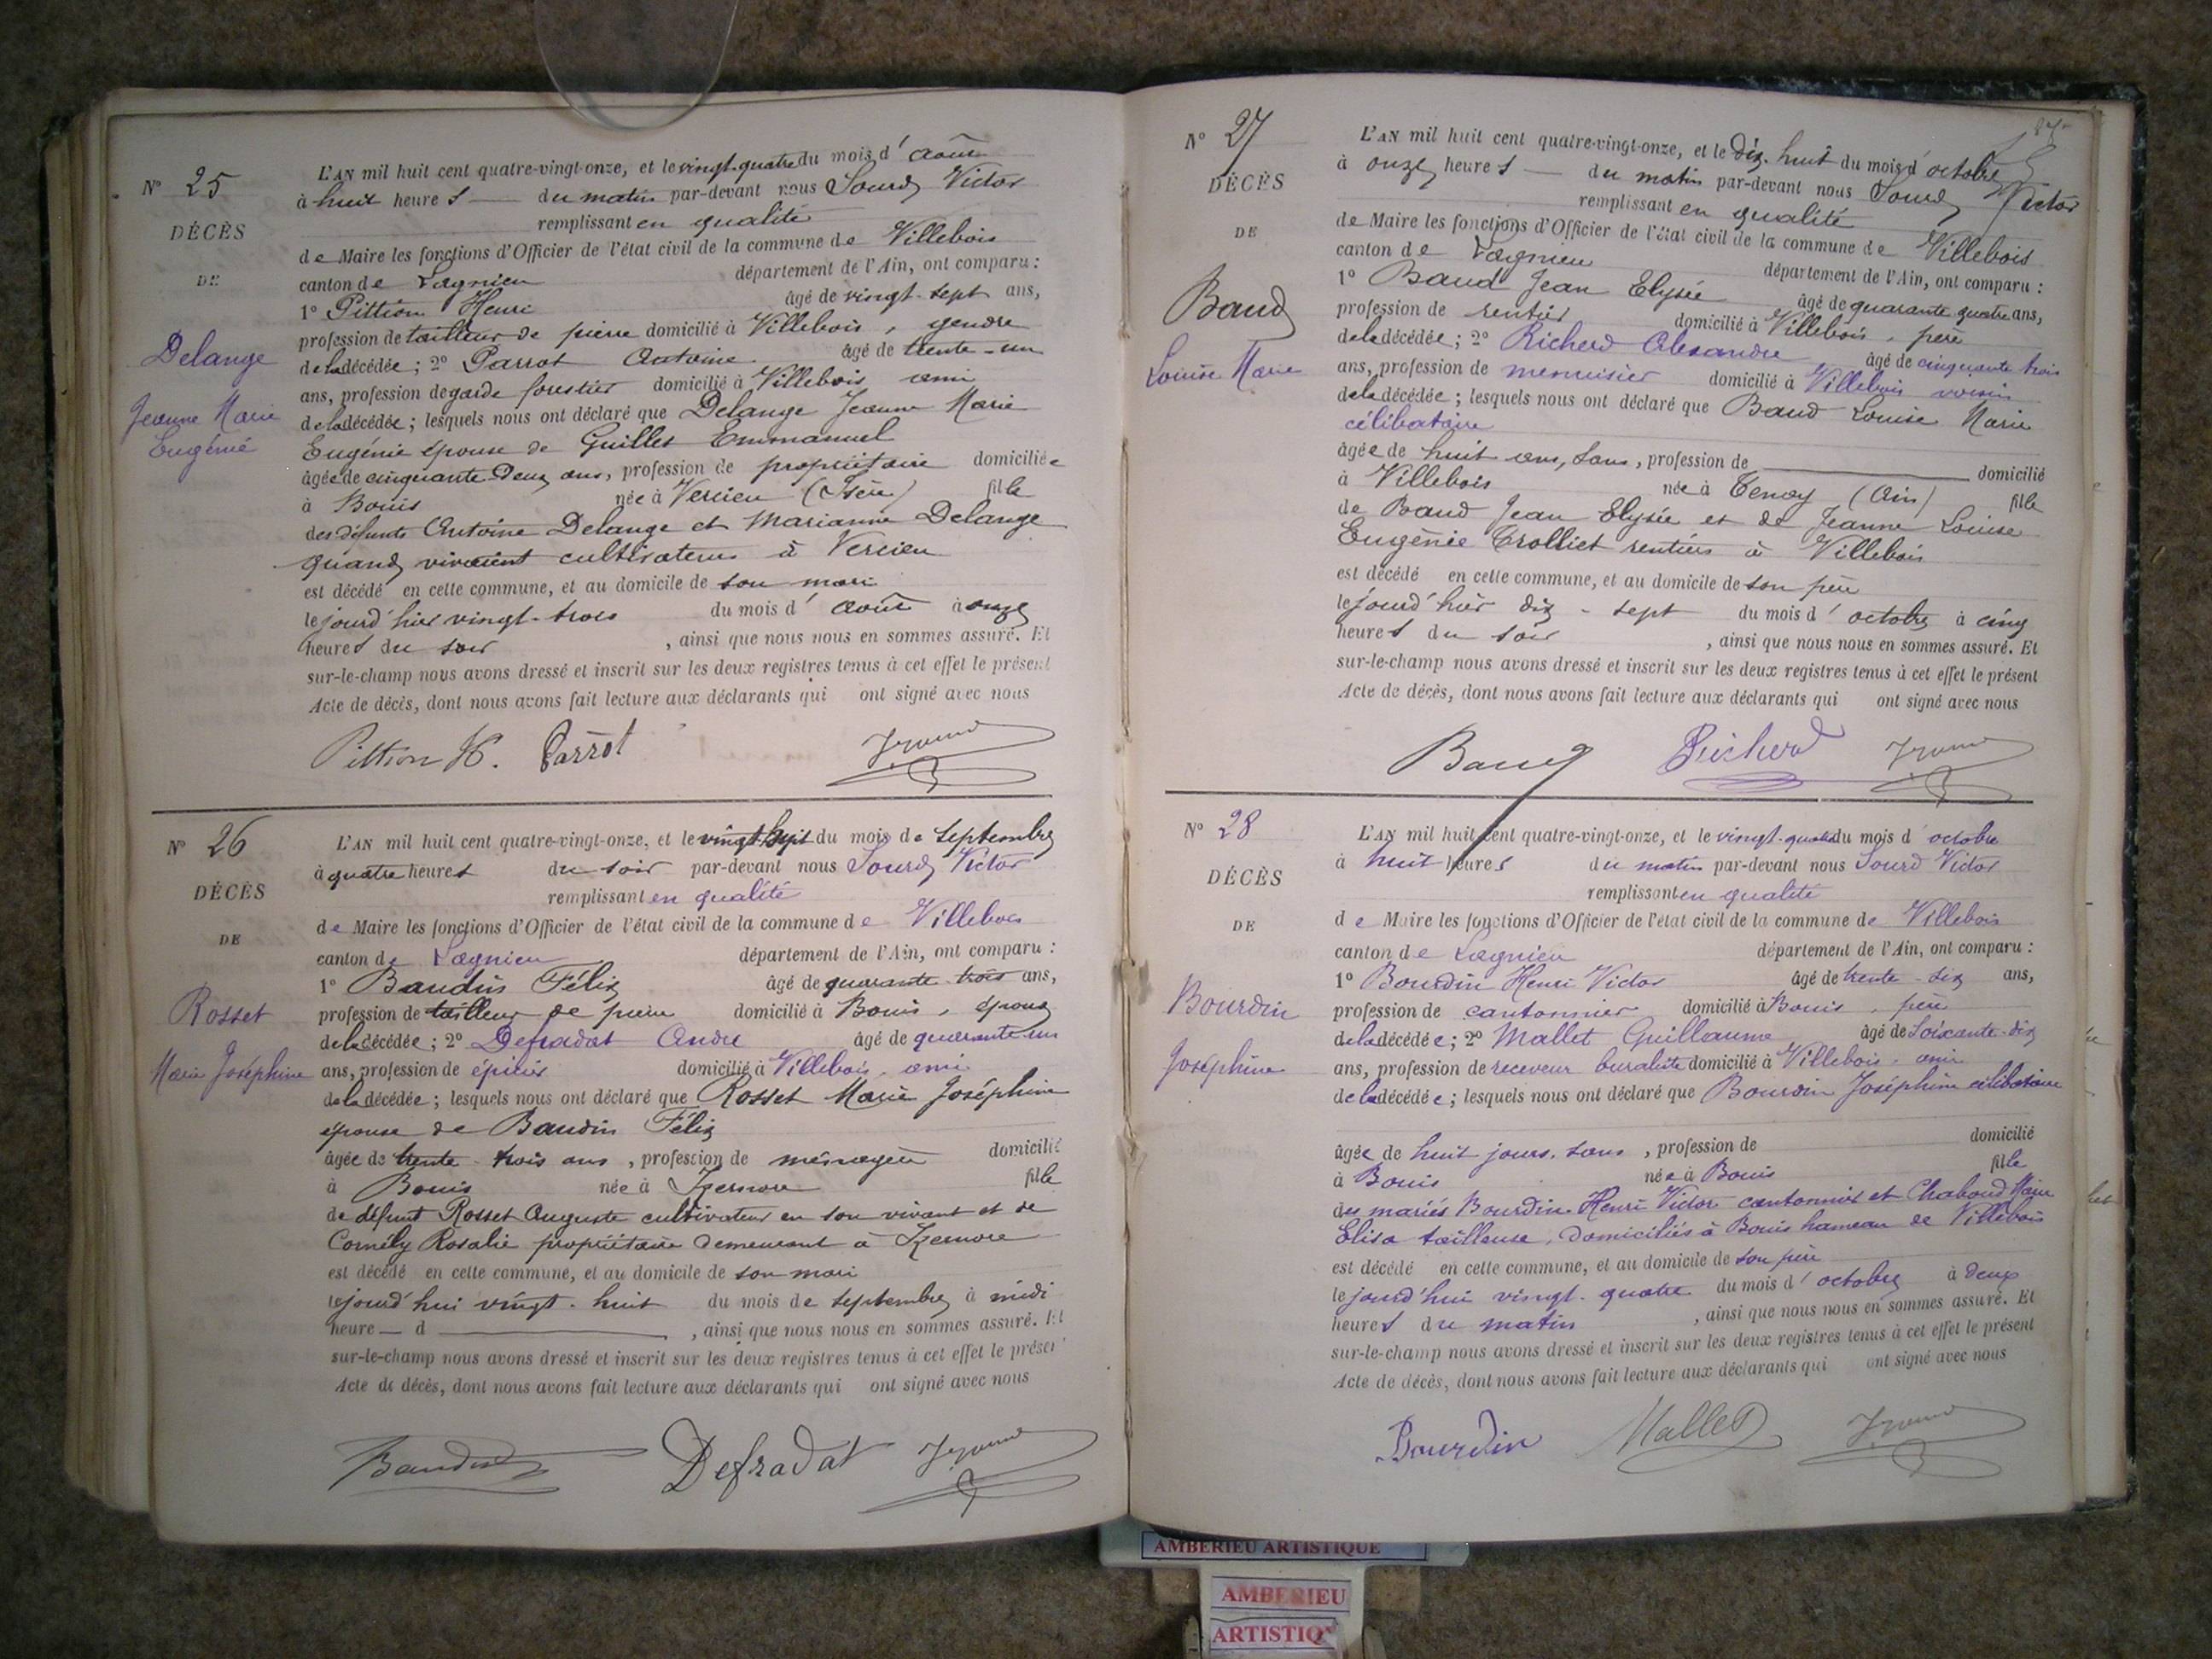 N° 25
DÉCÈS
DE
Delange
Jeanne Marie
Eugénie
L'AN mil huit cent quatre-vingt-onze, et le vingt-quatre du mois d'août
à huit heures du matin par-devant nous Sourd Victor
remplissant en qualité
de Maire les fonctions d'Officier de l'état civil de la commune de Villebois
canton de Lagnieu département de l'Ain, ont comparu :
1° Pittion Henri âgé de vingt-sept ans,
profession de tailleur de pierre domicilié à Villebois, gendre
de la décédée ; 2° Parrot Antoine âgé de trente-un
ans, profession de garde forestier domicilié à Villebois ami
de la décédée ; lesquels nous ont déclaré que Delange Jeanne Marie
Eugénie épouse de Guillet Emmanuel
âgée de cinquante-deux ans, profession de propriétaire domiciliée
à Bouis née à Vercieu (Isère) fille
des défunts Antoine Delange et Marianne Delange
quand vivaient cultivateurs à Vercieu
est décédé en cette commune, et au domicile de son mari
le jourd'hier vingt-trois du mois d'août à onze
heures du soir , ainsi que nous nous en sommes assuré. Et
sur-le-champ nous avons dressé et inscrit sur les deux registres tenus à cet effet le présent
Acte de décès, dont nous avons fait lecture aux déclarants qui ont signé avec nous
Pittion H. Parrot
N° 26
DÉCÈS
DE
Rosset
Marie Joséphine
L'AN mil huit cent quatre-vingt-onze, et le vingt-huit du mois de septembre
à quatre heures du soir par-devant nous Sourd Victor
remplissant en qualité
de Maire les fonctions d'Officier de l'état civil de la commune de Villebois
canton de Lagnieu département de l'Ain, ont comparu :
1° Baudin Félix âgé de quarante-trois ans,
profession de tailleur de pierre domicilié à Bouis, époux
de la décédée ; 2° Defradat André âgé de quarante-un
ans, profession de épicier domicilié à Villebois, ami
de la décédée ; lesquels nous ont déclaré que Rosset Marie Joséphine
épouse de Baudin Félix
âgée de trente-trois ans, profession de ménagère domicilié
à Bouis née à Izernore fille
de défunt Rosset Auguste cultivateur en son vivant et de
Comély Rosalie propriétaire demeurant à Izernore
est décédé en cette commune, et au domicile de son mari
le jourd'hui vingt-huit du mois de septembre à midi
heure d , ainsi que nous nous en sommes assuré. Et
sur-le-champ nous avons dressé et inscrit sur les deux registres tenus à cet effet le présent
Acte de décès, dont nous avons fait lecture aux déclarants qui ont signé avec nous
Baudin Defradat
N° 27
DÉCÈS
DE
Baud
Louise Marie
L'AN mil huit cent quatre-vingt-onze, et le dix-huit du mois d'octobre
à onze heures du matin par-devant nous Sourd Victor
remplissant en qualité
de Maire les fonctions d'Officier de l'état civil de la commune de Villebois
canton de Lagnieu département de l'Ain, ont comparu :
1° Baud Jean Elysée âgé de quarante quatre ans,
profession de rentier domicilié à Villebois, père
de la décédée ; 2° Richerd Alexandre âgé de cinquante trois
ans, profession de menuisier domicilié à Villebois voisin
de la décédée ; lesquels nous ont déclaré que Baud Louise Marie
célibataire
âgée de huit ans, sans, profession de domicilié
à Villebois née à Tenay (Ain) fille
de Baud Jean Elysée et de Jeanne Louise
Eugénie Trolliet rentiers à Villebois
est décédé en cette commune, et au domicile de son père
le jourd'hier dix-sept du mois d'octobre à cinq
heures du soir , ainsi que nous nous en sommes assuré. Et
sur-le-champ nous avons dressé et inscrit sur les deux registres tenus à cet effet le présent
Acte de décès, dont nous avons fait lecture aux déclarants qui ont signé avec nous
Baud Richerd
N° 28
DÉCÈS
DE
Bourdin
Joséphine
L'AN mil huit cent quatre-vingt-onze, et le vingt-quatre du mois d'octobre
à huit heures du matin par-devant nous Sourd Victor
remplissant en qualité
de Maire les fonctions d'Officier de l'état civil de la commune de Villebois
canton de Lagnieu département de l'Ain, ont comparu :
1° Bourdin Henri Victor âgé de trente-six ans,
profession de cantonnier domicilié à Bouis, père
de la décédée ; 2° Mallet Guillaume âgé de soixante-dix
ans, profession de receveur buraliste domicilié à Villebois, ami
de la décédée ; lesquels nous ont déclaré que Bourdin Joséphine célibataire
âgée de huit jours, sans, profession de domicilié
à Bouis née à Bouis fille
des mariés Bourdin Henri Victor cantonnier et Chaboud Marie
Elisa tailleuse, domiciliés à Bouis hameau de Villebois
est décédé en cette commune, et au domicile de son père
le jourd'hui vingt-quatre du mois d'octobre à deux
heures du matin , ainsi que nous nous en sommes assuré. Et
sur-le-champ nous avons dressé et inscrit sur les deux registres tenus à cet effet le présent
Acte de décès, dont nous avons fait lecture aux déclarants qui ont signé avec nous
Bourdin Mallet
AMBERIEU ARTISTIQUE
AMBERIEU
ARTISTIQ